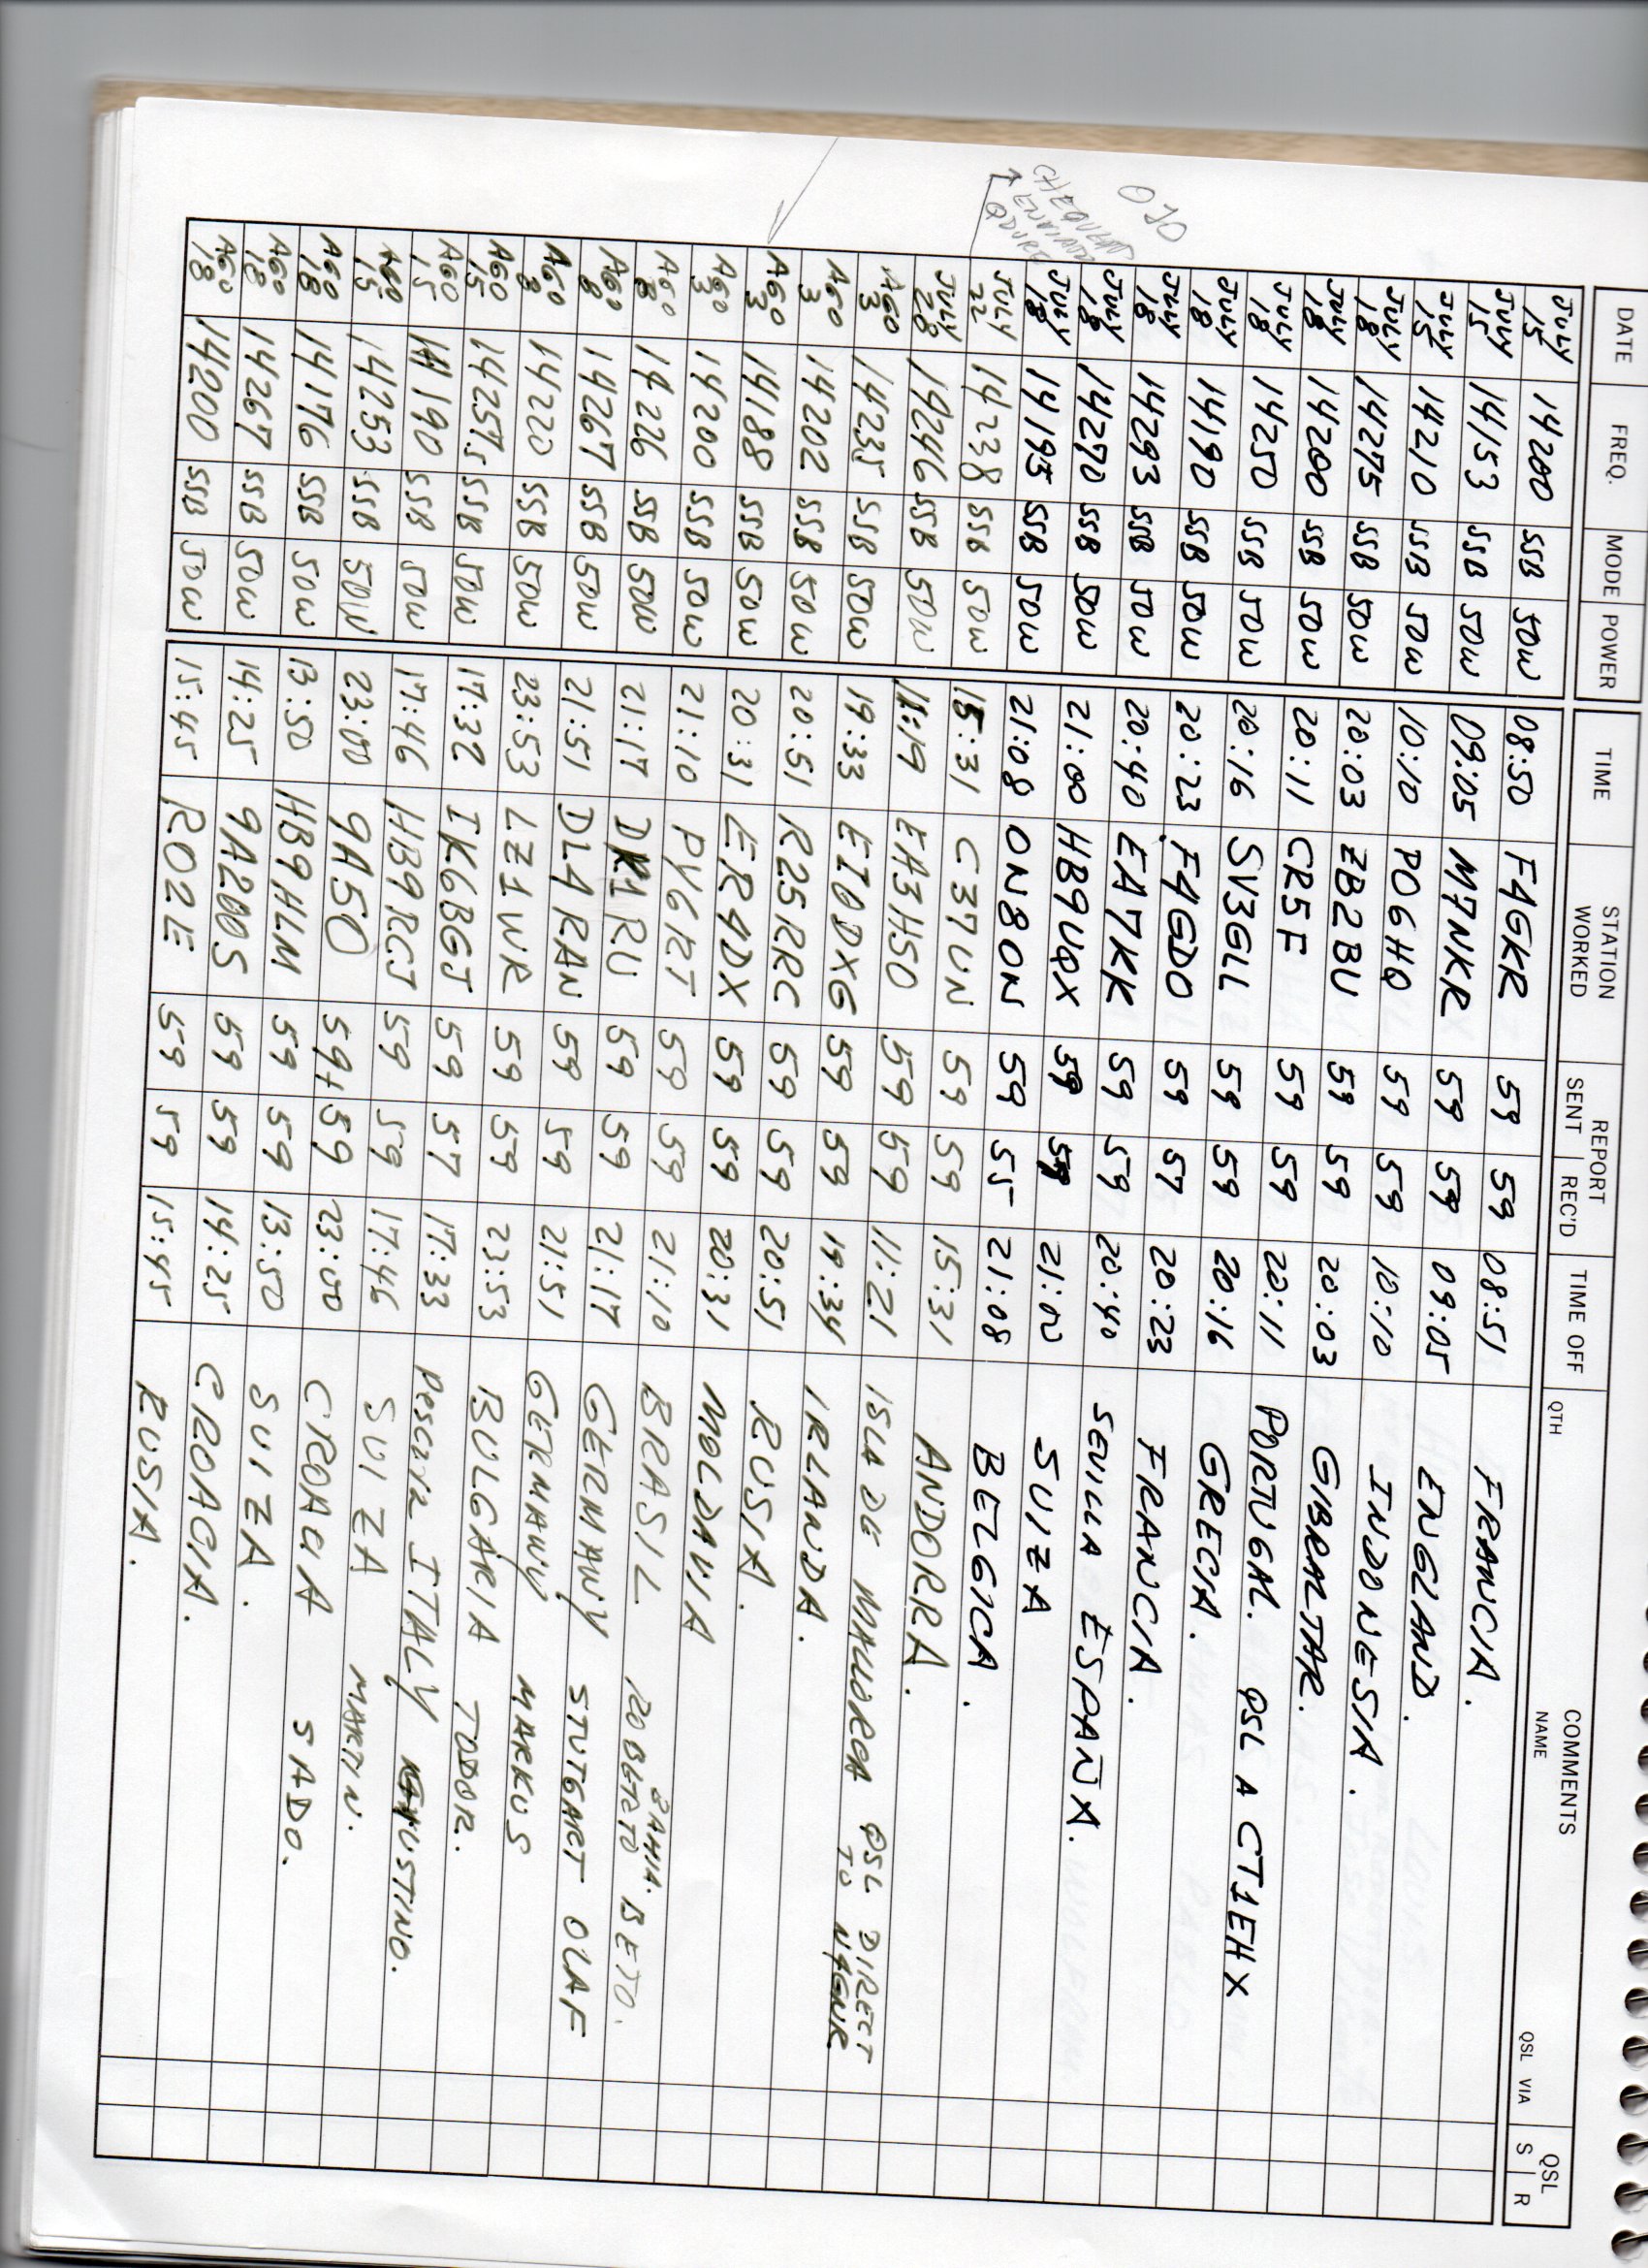 DATE FREQ. MODE POWER TIME STATION WORKED REPORT SENT REC'D TIME OFF QTH COMMENTS NAME QSL VIA QSL S R
JULY 15 14200 SSB 50W 08:50 F4GKR 59 59 08:51 FRANCIA.
JULY 15 14153 SSB 50W 09:05 M7NKR 59 59 09:05 ENGLAND.
JULY 15 14210 SSB 50W 10:10 PO6HQ 59 59 10:10 INDONESIA.
JULY 18 14275 SSB 50W 20:03 ZB2BU 59 59 20:03 GIBRALTAR.
JULY 18 14200 SSB 50W 20:11 CR5F 59 59 20:11 PORTUGAL. QSL A CT1EHX
JULY 18 14250 SSB 50W 20:16 SV3GLL 59 59 20:16 GRECIA.
JULY 18 14190 SSB 50W 20:23 F4GDO 59 57 20:23 FRANCIA.
JULY 18 14293 SSB 50W 20:40 EA7KK 59 59 20:40 SEVILLA ESPAÑA.
JULY 18 14270 SSB 50W 21:00 HB9VQX 59 59 21:00 SUIZA
JULY 18 14195 SSB 50W 21:08 ON8ON 59 55 21:08 BELGICA.
OJO
CHEQUEAR
JULY 22 14238 SSB 50W 15:31 C37UN 59 59 15:31 ANDORRA.
JULY 28 14246 SSB 50W 11:19 EA3HSO 59 59 11:21 ISLA DE MALLORCA QSL DIRECT TO
AGO 3 14235 SSB 50W 19:33 EI0DXG 59 59 19:34 IRLANDA.
AGO 3 14202 SSB 50W 20:51 R25RRC 59 59 20:51 RUSIA.
AGO 3 14188 SSB 50W 20:31 ER4DX 59 59 20:31 MOLDAVIA
AGO 3 14200 SSB 50W 21:10 PY6RT 59 59 21:10 BRASIL BAHIA. ROBERTO BETO.
AGO 8 14226 SSB 50W 21:17 DK1RU 59 59 21:17 GERMANY STUTGART OLAF
AGO 8 14267 SSB 50W 21:51 DL4RAN 59 59 21:51 GERMANY MARKUS
AGO 8 14220 SSB 50W 23:53 LZ1WR 59 59 23:53 BULGARIA TODOR.
AGO 15 14257.5 SSB 50W 17:32 IK6BGJ 59 57 17:33 Pescara ITALY
AGO 15 14190 SSB 50W 17:46 HB9RCJ 59 59 17:46 SUIZA MARTIN.
AGO 15 14253 SSB 50W 23:00 9A5O 59+ 59 23:00 CROACIA SADO.
AGO 18 14176 SSB 50W 13:50 HB9HLM 59 59 13:50 SUIZA.
AGO 18 14267 SSB 50W 14:25 9A200S 59 59 14:25 CROACIA.
AGO 18 14200 SSB 50W 15:45 RO2E 59 59 15:45 RUSIA.